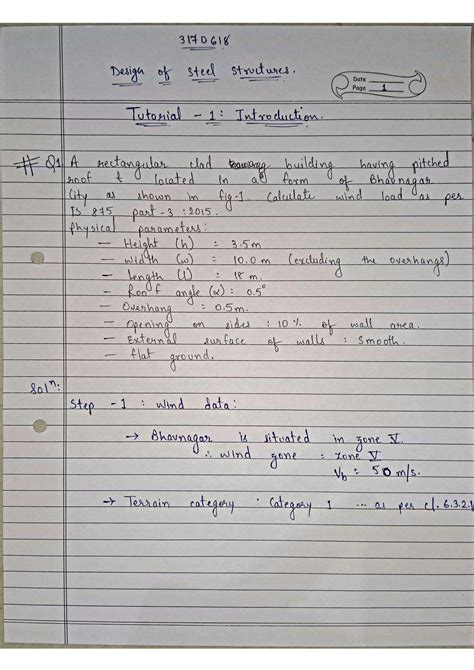 3170618
Design of Steel Structures.
Date
Page 1
Tutorial - 1 : Introduction.
# Q1. A rectangular clad building having pitched
roof & located in a form of Bhavnagar
City as shown in fig-1. Calculate wind load as per
IS 875 part-3 : 2015.
Physical parameters:
— Height (h) : 3.5 m
— width (w) : 10.0 m (excluding the overhangs)
— Length (l) : 18 m.
— Roof angle (α) : 0.5°
— Overhang : 0.5m.
— Opening on sides : 10 % of wall area.
— External surface of walls : Smooth.
— flat ground.
Solⁿ:
Step - 1 : Wind data:
→ Bhavnagar is situated in zone V.
∴ Wind zone : zone V
Vb = 50 m/s.
→ Terrain category : Category 1 ... as per cl. 6.3.2.1